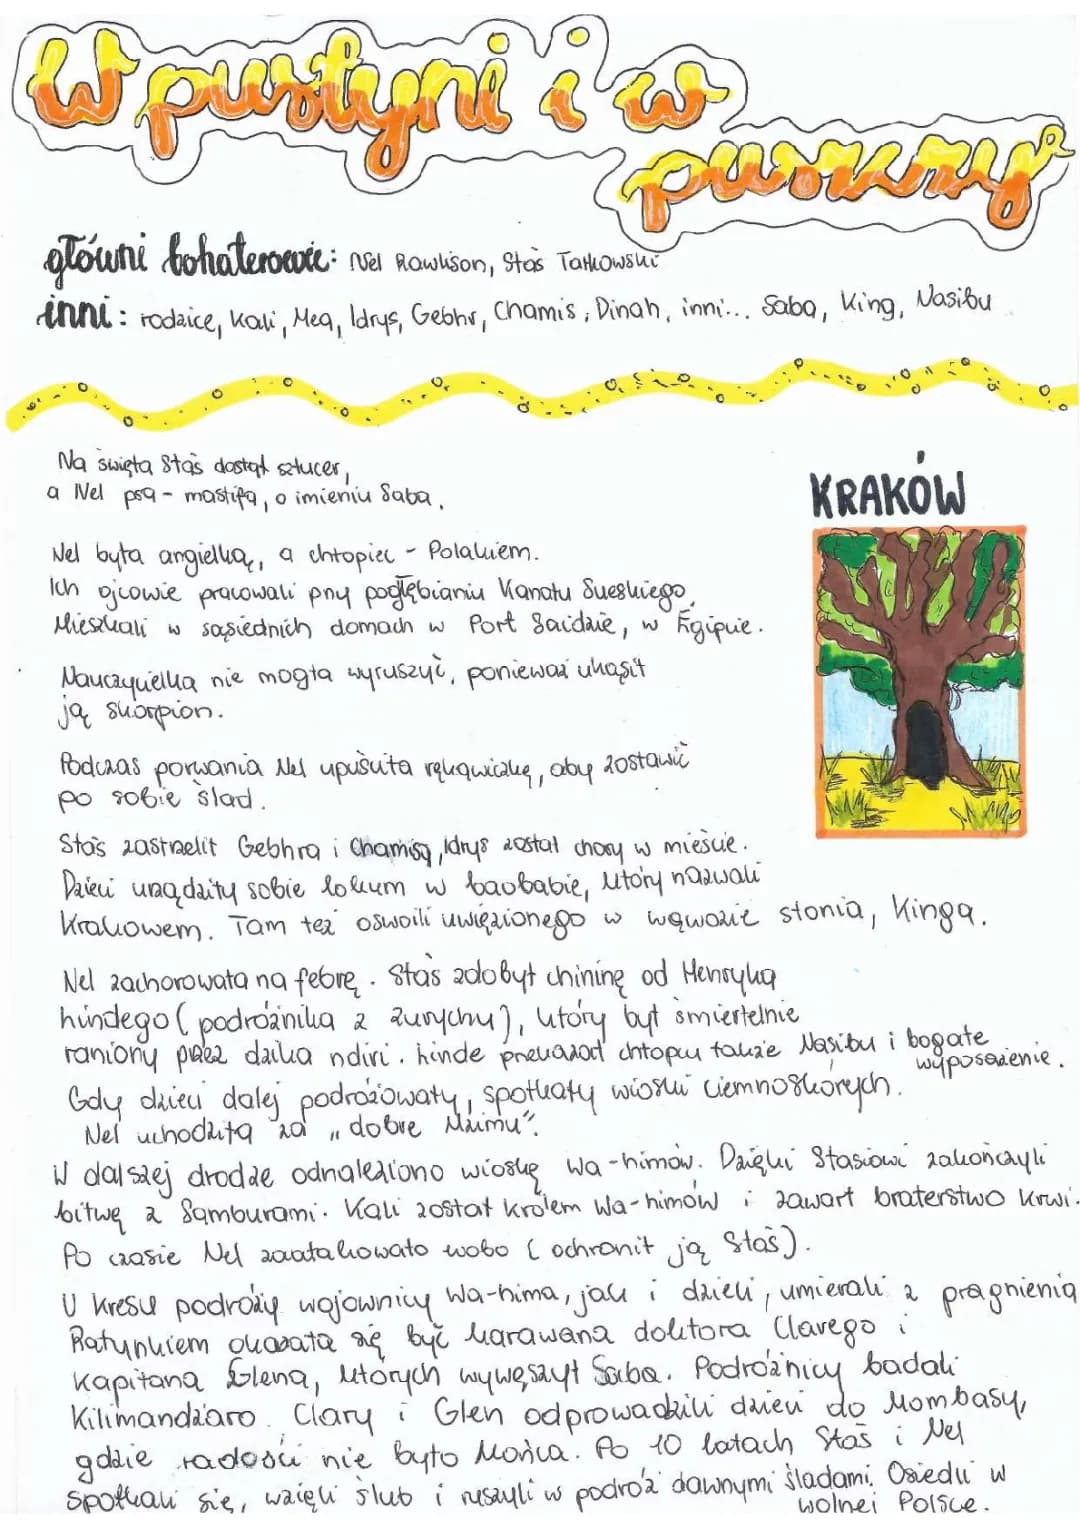 W pustyni i w
puszczy
główni bohaterowie: Nel Rawlison, Staś Tarkowski
inni: rodzice, Kali, Mea, Idrys, Gebhr, Chamis, Dinah, inni... Saba, King, Nasibu
Na święta Staś dostał sztucer,
a Nel psa - mastifa, o imieniu Saba.
KRAKÓW
Nel była angielką, a chłopiec - Polakiem.
Ich ojcowie pracowali przy pogłębianiu Kanału Sueskiego.
Mieszkali w sąsiednich domach w Port Saidzie, w Egipcie.
Nauczycielka nie mogła wyruszyć, ponieważ ukąsił
ją skorpion.
Podczas porwania Nel upuściła rękawiczkę, aby zostawić
po sobie ślad.
Staś zastrzelił Gebhra i Chamisa, Idrys został chory w mieście.
Dzieci urządziły sobie lokum w baobabie, który nazwali
Krakowem. Tam też oswoili uwięzionego w wąwozie słonia, Kinga.
Nel zachorowała na febrę. Staś zdobył chininę od Henryka
hindego (podróżnika z Zurychu), który był śmiertelnie
raniony przez dzika ndiri. hinde przekazał chłopcu także Nasibu i bogate
wyposażenie.
Gdy dzieci dalej podróżowały, spotkały wioski ciemnoskórych.
Nel uchodziła za „dobre Mzimu".
W dalszej drodze odnaleziono wioskę Wa-himów. Dzięki Stasiowi zakończyli
bitwę z Samburami. Kali został królem Wa-himów i zawarł braterstwo krwi.
Po czasie Nel zaatakowało wobo (ochronił ją Staś).
U kresu podróży wojownicy Wa-hima, jak i dzieci, umierali z pragnienia
Ratunkiem okazała się być karawana doktora Clarego i
Kapitana Glena, których wywęszył Saba. Podróżnicy badali
Kilimandżaro. Clary i Glen odprowadzili dzieci do Mombasy,
gdzie radości nie było końca. Po 10 latach Staś i Nel
spotkali się, wzięli ślub i ruszyli w podróż dawnymi śladami. Osiedli w
wolnej Polsce.